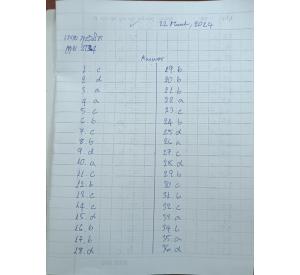 22 March, 2024
Answer
1. c
2. d
3. a
4. a
5. c
6. b
7. c
8. b
9. d
10. a
11. c
12. b
13. c
14. c
15. d
16. b
17. b
18. d
19. b
20. b
21. b
22. a
23. c
24. c
25. d
26. a
27. c
28. d
29. b
30. c
31. b
32. c
33. a
34. b
35. a
36. d